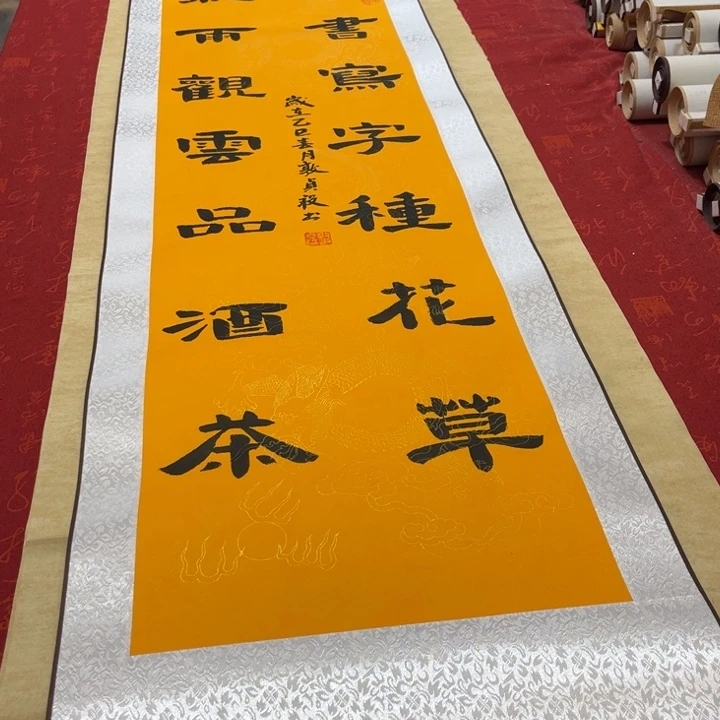 書寫字種花草
雨觀雲品酒茶
歲在乙巳春月敬貞敬书